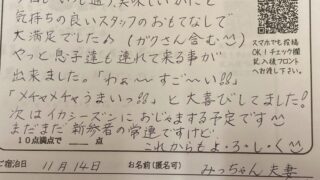 気持ちの良いスタッフのおもてなしで
大満足でした♪(ガクさん含む^^)
やっと息子達も連れて来る事が
出来ました。「わぁ〜すご〜い!!」
「メチャメチャうまいっ!!」と大喜びしてました!
次はイカシーズンにおじゃまする予定です^^
まだまだ新参者の常連ですけど
これからもよ・ろ・し・く^^
10点満点で 点
ご宿泊日 11月14日 お名前(匿名可) みっちゃん夫妻
スマホでも投稿
OK!チェック欄
記入後フロント
へお渡し下さい。